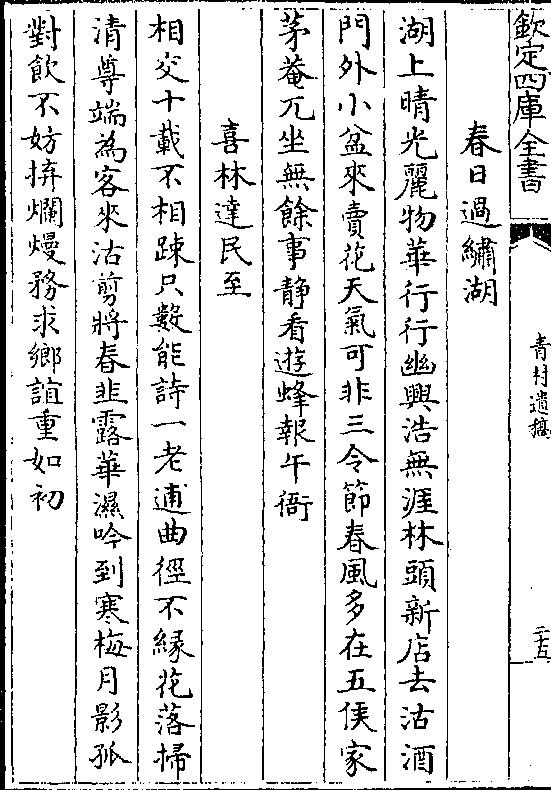 欽定四庫全書
青村遺稿
二十五
春日過繡湖
湖上晴光麗物華行行幽興浩無涯林頭新店去沽酒
門外小盆來賣花天氣可非三令節春風多在五侯家
茅菴兀坐無餘事静看遊蜂報午衙
喜林達民至
相交十載不相踈只數能詩一老逋曲徑不緣花落掃
清尊端為客來沽剪將春韭露華濕吟到寒梅月影孤
對飲不妨拚爛熳務求鄉誼重如初